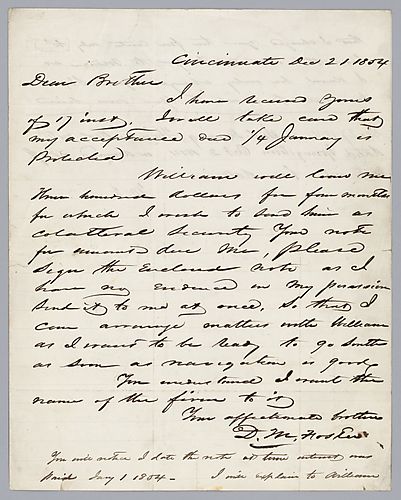 Cincinnati Dec 21 1854
Dear Brother
I have received yours
of 17 inst. I will take care that
my acceptance due 1/4 January is
Protected
William will loan me
three hundred dollars for four months
for which I wish to send him as
colatteral Security Your note
for amount due me, please
Sign the Enclosed note as I
have no Evidence in my possession
Send it to me at once. So that I
can arrange matters with William
as I want to be ready to go South
as soon as navigation is good
You understand I want the
name of the firm to it
Your affectionate brother
D. M. Foster
You will notice I date the note at time interest was
paid Jany 1 1854 - I will explain to William